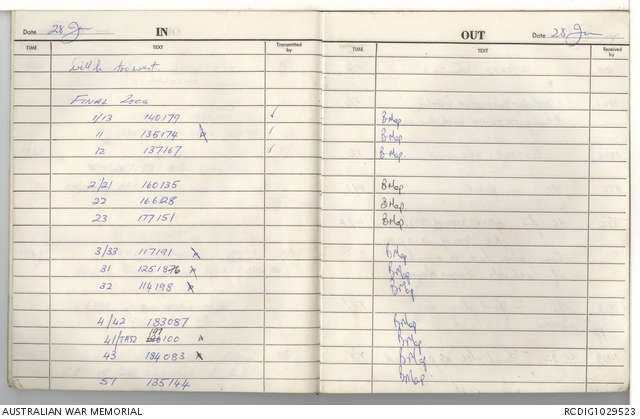 Date 28 Jan IN
TIME TEXT Transmitted by
will be too wet.
FINAL LOCS
1/13 140179 ✓
11 135174 /
12 137167 /
2/21 160135
22
23 177151
3/33 117191
31
32 114198
4/42 183087
41/TASZ 197100
43 184083
51 135144
OUT Date 28 Jan
TIME TEXT Received by
BMap
BMap
BMap
BMap
BMap
BMap
BMap
BMap
BMap
BMap
BMap
BMap
BMap
AUSTRALIAN WAR MEMORIAL RCDIG1029523